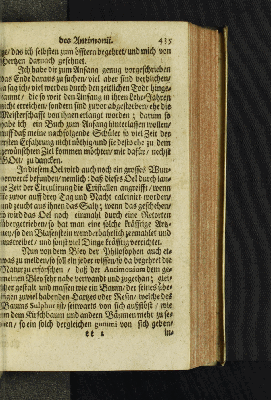 des Antimonii. 435
ge/ das ich selbsten zum öfftern begehret/ und mich von
Hertzen darnach gesehnet.
Ich habe dir zum Anfang genug vorgeschrieben
das Ende daraus zu suchen/ viel aber sind verblichen/
ja sag ich/ viel werden durch den zeitlichen Todt hinge-
nicht erreichen/ sondern sind zuvor abgescheiden/ ehe die
Meisterschafft von ihnen erlanget worden; darum so
habe ich ein Buch zum Anfang hinterlassen wollen/
muß daß meine nachfolgende Schüler so viel Zeit der
ersten Erfahrung nicht nöthig und sie desto ehe zu dem
gewünschten Ziel kommen möchten/ mir dafür/ nechst
GOtt/ zu dancken.
In diesem Oel wird auch noch ein grosses Wun-
derwerck befunden/ nemlich: daß dieses Oel durch lan-
ge Zeit der Circulirung die Cristallen angreifft/ wenn
sie zuvor auff drey Tag und Nacht calcinirt worden/
und zeucht aus ihnen das Saltz; wenn das geschehen/
so wird das Oel noch einmahl durch eine Retorten
übergetrieben/ so hat man eine solche kräfftige Artz-
ney/ so den Blasenstein wunderbahrlich zermahlet und
austreibet/ und sonst viel Dinge kräfftig verrichtet.
Nun von dem Bley der Philosophen auch et-
was zu melden/ so soll ein jeder wissen/ so da begehret die
Natur zu erforschen/ daß der Antimonium dem ge-
meinen Bley sehr nahe verwandt und zugethan; glei-
cher gestalt und massen wie ein Baum/ der seines
zuviel habenden Hartzes oder Resin/ welche des
Baums Sulphur ist/ seitwarts von sich aufstösst/ wie
dem Kirschbaum und andern Bäumen mehr zu se-
hen/ so ein solch dergleichen gummi von sich geben/